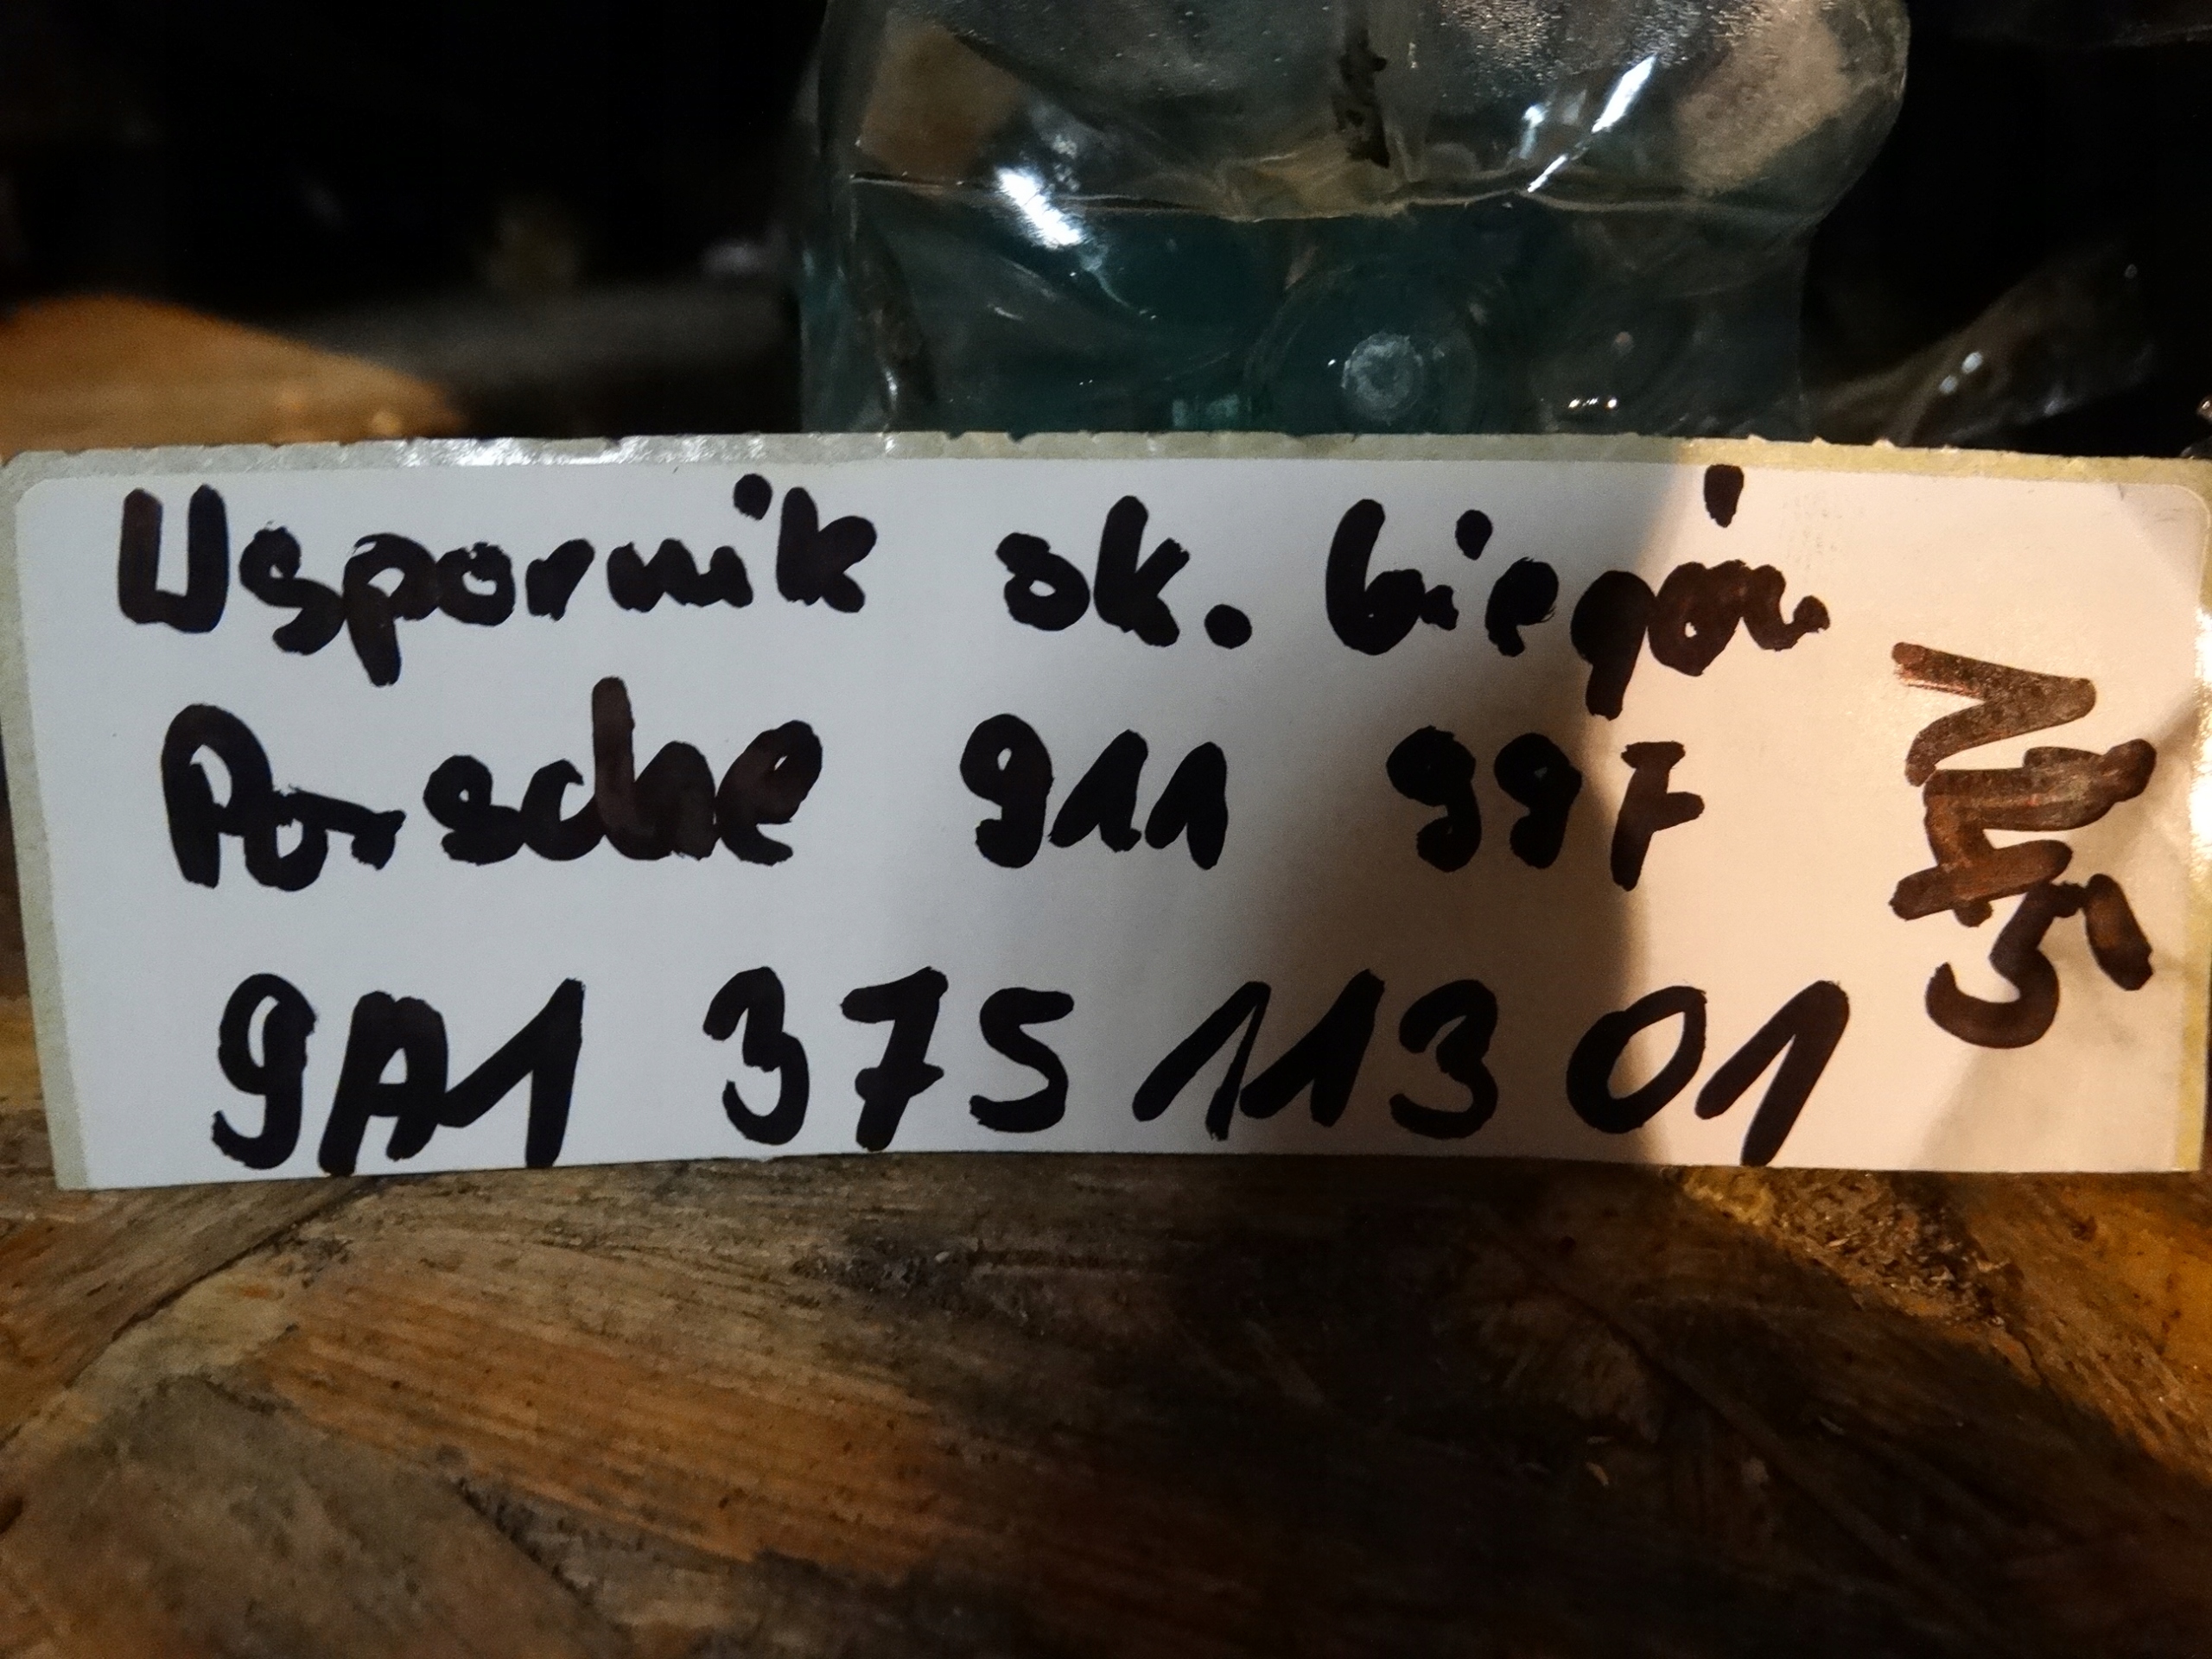 Wspornik sk. biegów
Porsche 911 99F
9A1 375 113 01
N45